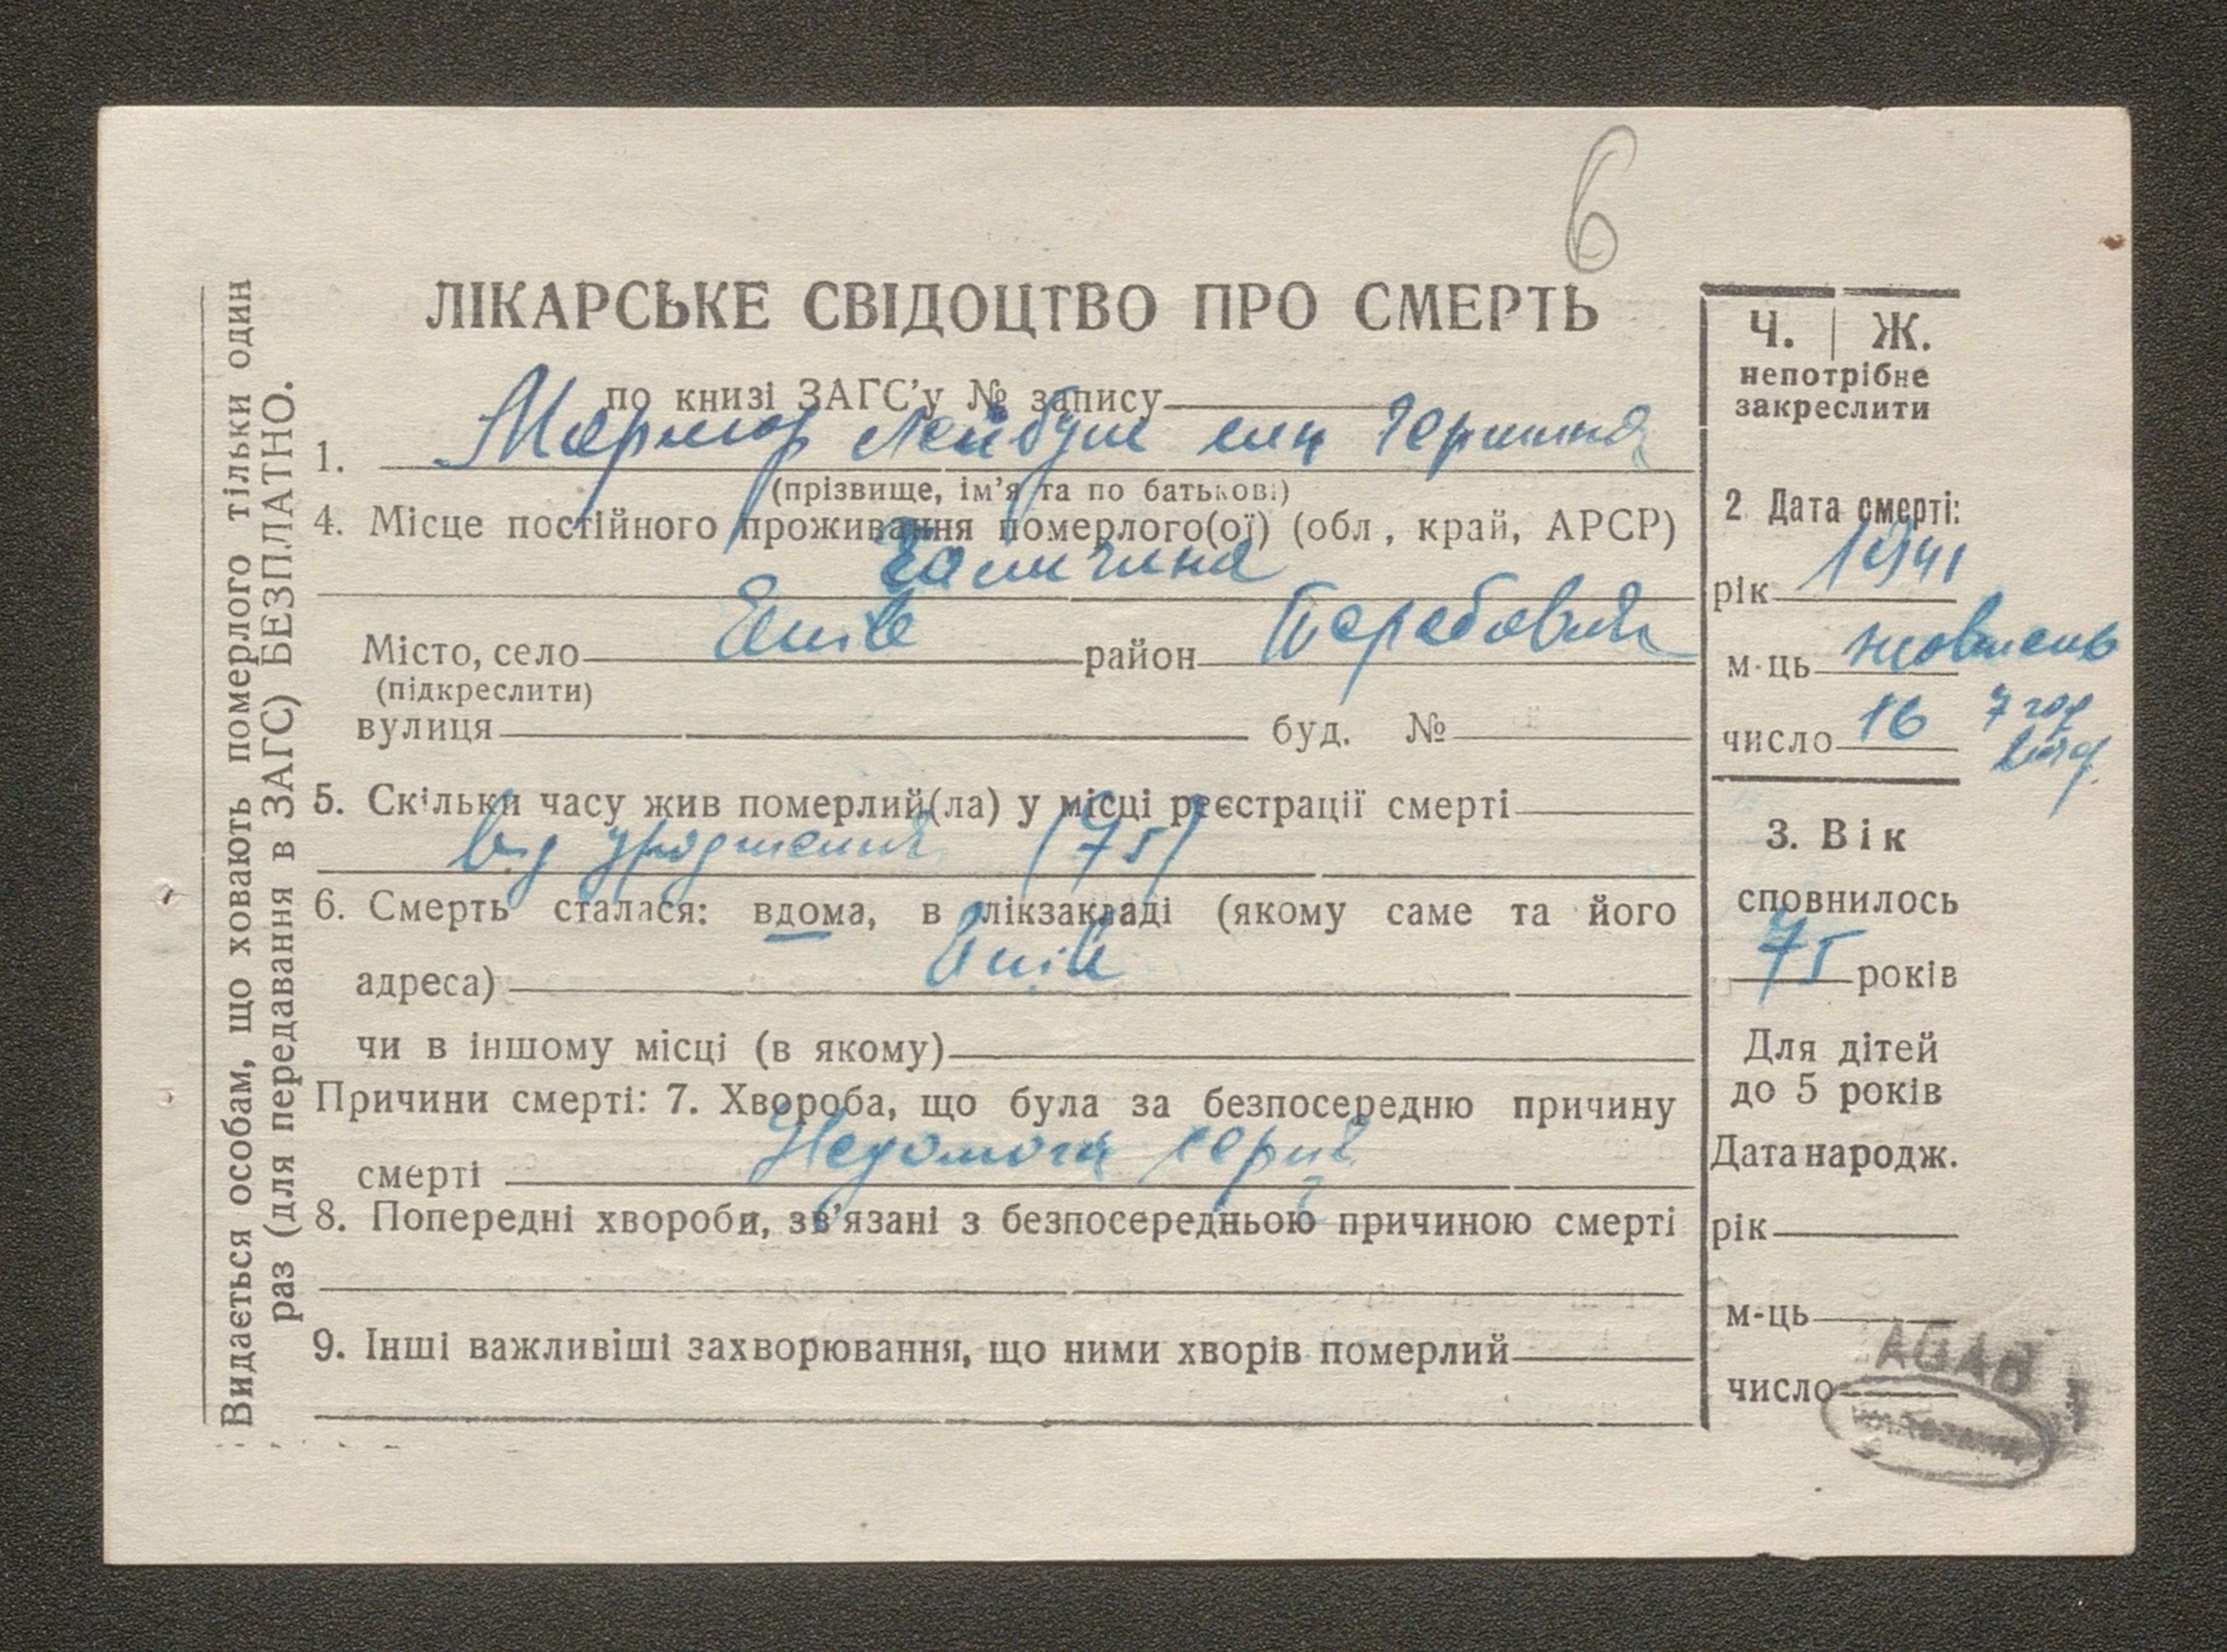 6
ЛІКАРСЬКЕ СВІДОЦТВО ПРО СМЕРТЬ
по книзі ЗАГС'у № запису
1. Мармор Лейбуш син Гершина
(прізвище, ім'я та по батькові)
4. Місце постійного проживання померлого(ої) (обл, край, АРСР)
Галичина
Місто, село район Теребовля
(підкреслити)
вулиця буд. №
5. Скільки часу жив померлий(ла) у місці реєстрації смерті
від уродження (75)
6. Смерть сталася: вдома, в лікзакладі (якому саме та його
адреса)
чи в іншому місці (в якому)
Причини смерті: 7. Хвороба, що була за безпосередню причину
смерті Недомога серця
8. Попередні хвороби, зв'язані з безпосередньою причиною смерті
9. Інші важливіші захворювання, що ними хворів померлий
Ч. | Ж.
непотрібне
закреслити
2 Дата смерті:
рік 1941
м-ць жовтень
число 16 7 год
3. Вік
сповнилось
75 років
Для дітей
до 5 років
Дата народж.
рік
м-ць
число
AGAD
Видається особам, що ховають померлого тільки один
раз (для передавання в ЗАГС) БЕЗПЛАТНО.